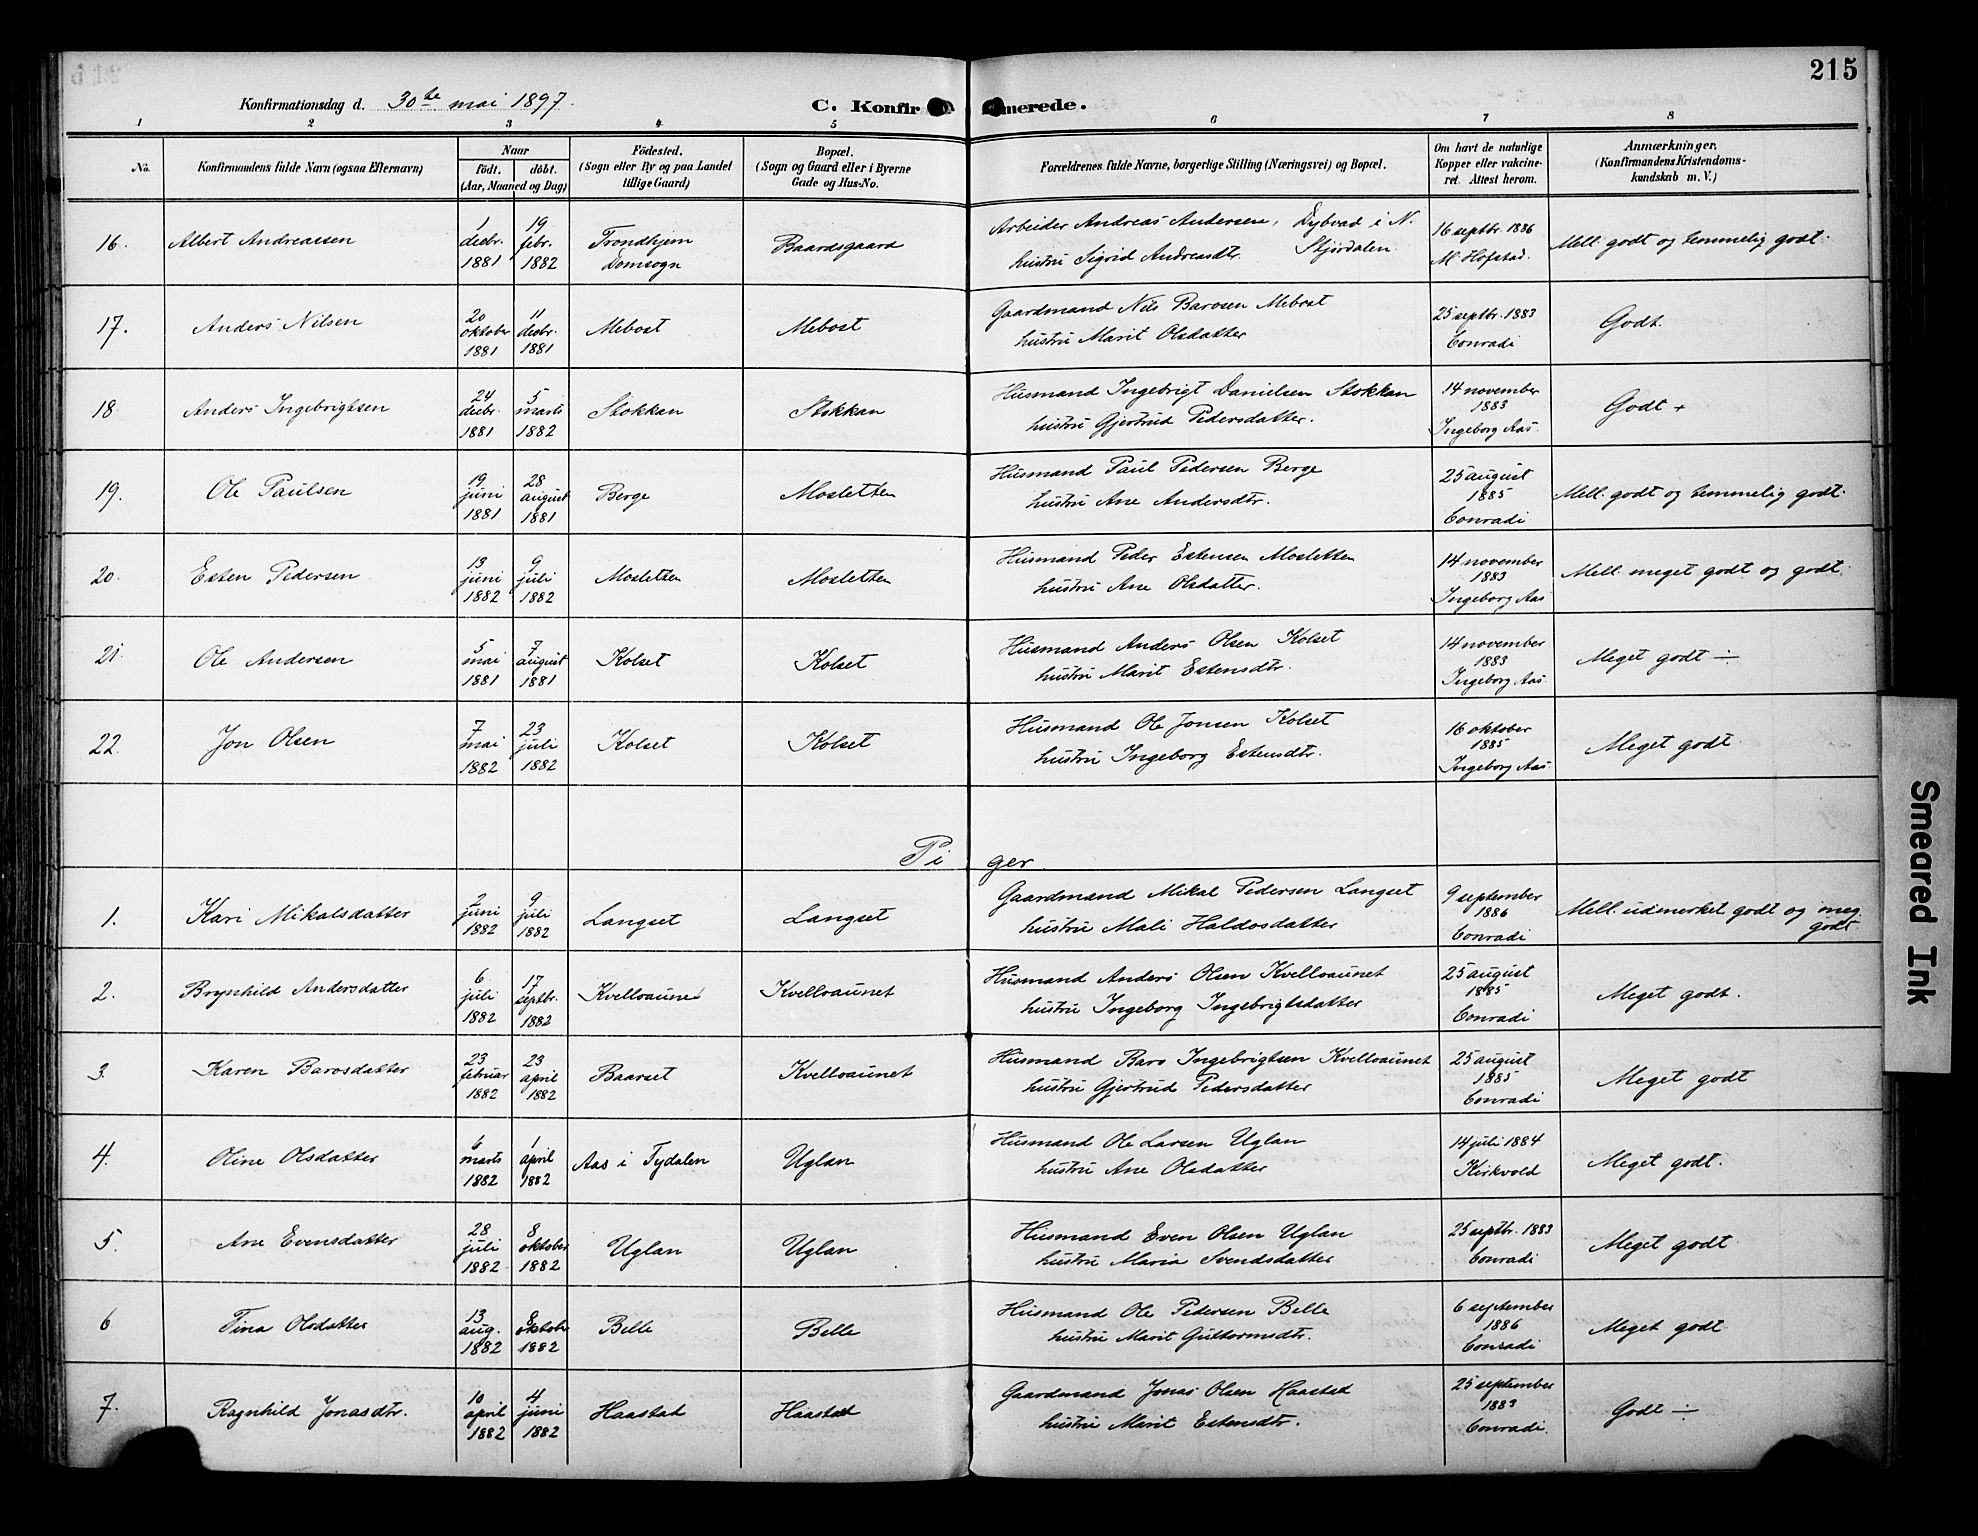 215
Konfirmationsdag d. 30te mai 1897.
C. Konfir merede.
1 2 3 4 5 6 7 8
No.
Konfirmandens fulde Navn (ogsaa Efternavn)
Naar
födt. döbt.
(Aar, Maaned og Dag)
Födested.
(Sogn eller By og paa Landet
tillige Gaard)
Bopæl.
(Sogn og Gaard eller i Byerne
Gade og Hus-No.
Forældrenes fulde Navne, borgerlige Stilling (Næringsvei) og Bopæl.
Om havt de naturlige
Kopper eller vakcine-
ret. Attest herom.
Anmærkninger.
(Konfirmandens Kristendoms-
kundskab m. V.)
16. Albert Andreassen
1 desbr. 1881
19 febr. 1882
Trondhjem
Domsogn
Baardsgaard
Arbeider Andreas Andersen, Dybvad i N.
hustru Sigrid Andreasdtr. Stjørdalen.
16 septbr. 1886
M. Hofstad.
Mell. godt og temmelig godt.
17. Anders Nilsen
20 oktober 1881
11 desbr. 1881
Mebost
Mebost
Gaardmand Nils Barosen Mebost
hustru Marit Olsdatter
25 septbr. 1883
Conradi
Godt.
18. Anders Ingebrigtsen
24 desbr. 1881
5 marts 1882
Stokkan
Stokkan
Husmand Ingebrigt Danielsen Stokkan
hustru Gjertrud Pedersdatter.
14 november
1883
Ingeborg Aas.
Godt +
19. Ole Paulsen
19 juni 1881
28 august 1881
Berge
Mosletten
Husmand Paul Pedersen Berge
hustru Ane Andersdtr.
25 august
1885
Conradi
Mell. godt og temmelig godt.
20. Esten Pedersen
13 juni 1882
9 juli 1882
Mosletten
Mosletten
Husmand Peder Estensen Mosletten
hustru Ane Olsdatter.
14 november
1883
Ingeborg Aas
Mell. meget godt og godt.
21. Ole Andersen
5 mai 1881
7 august 1881
Kolset
Kolset
Husmand Anders Olsen Kolset
hustru Marit Estensdtr.
14 november
1883
Ingeborg Aas.
Meget godt ÷
22. Jon Olsen
7 mai 1882
23 juli 1882
Kolset
Kolset
Husmand Ole Jonsen Kolset
hustru Ingeborg Estensdtr.
16 oktober
1885
Ingeborg Aas.
Meget godt.
Piger
1. Kari Mikalsdatter
2 juni 1882
9 juli 1882
Langset
Langset
Gaardmand Mikal Pedersen Langset
hustru Mali Haldosdatter
9 september
1886
Conradi
Mell. udmerket godt og meg.
godt.
2. Brynhild Andersdatter
6 juli 1882
17 septbr. 1882
Kvelloaunet
Kvelloaunet
Husmand Anders Olsen Kvelloaunet
hustru Ingeborg Ingebrigtsdatter
25 august
1885
Conradi
Meget godt.
3. Karen Barosdatter
23 februar 1882
23 april 1882
Baarset
Kvelloaunet
Husmand Baro Ingebrigtsen Kvelloaunet
hustru Gjertrud Pedersdatter
25 august
1885
Conradi
Meget godt
4. Oline Olsdatter
6 marts 1882
1 april 1882
Aas i Tydalen
Uglan
Husmand Ole Larsen Uglan
hustru Ane Olsdatter
14 juli 1884
Kirkvold
Meget godt.
5. Ane Evensdatter
28 juli 1882
8 oktober 1882
Uglan
Uglan
Husmand Even Olsen Uglan
hustru Maria Svendsdatter
25 septbr. 1883
Conradi
Meget godt
6 Tina Olsdatter
13 aug. 1882
8 oktober 1882
Belle
Belle
Husmand Ole Pedersen Belle
hustru Marit Guttormsdtr.
6 september
1886
Conradi
Meget godt
7. Ragnhild Jonasdtr.
10 april 1882
4 juni 1882
Haastad
Haastad
Gaardmand Jonas Olsen Haastad
hustru Marit Estensdtr.
25 september
1883
Conradi.
Godt ÷
Smeared Ink